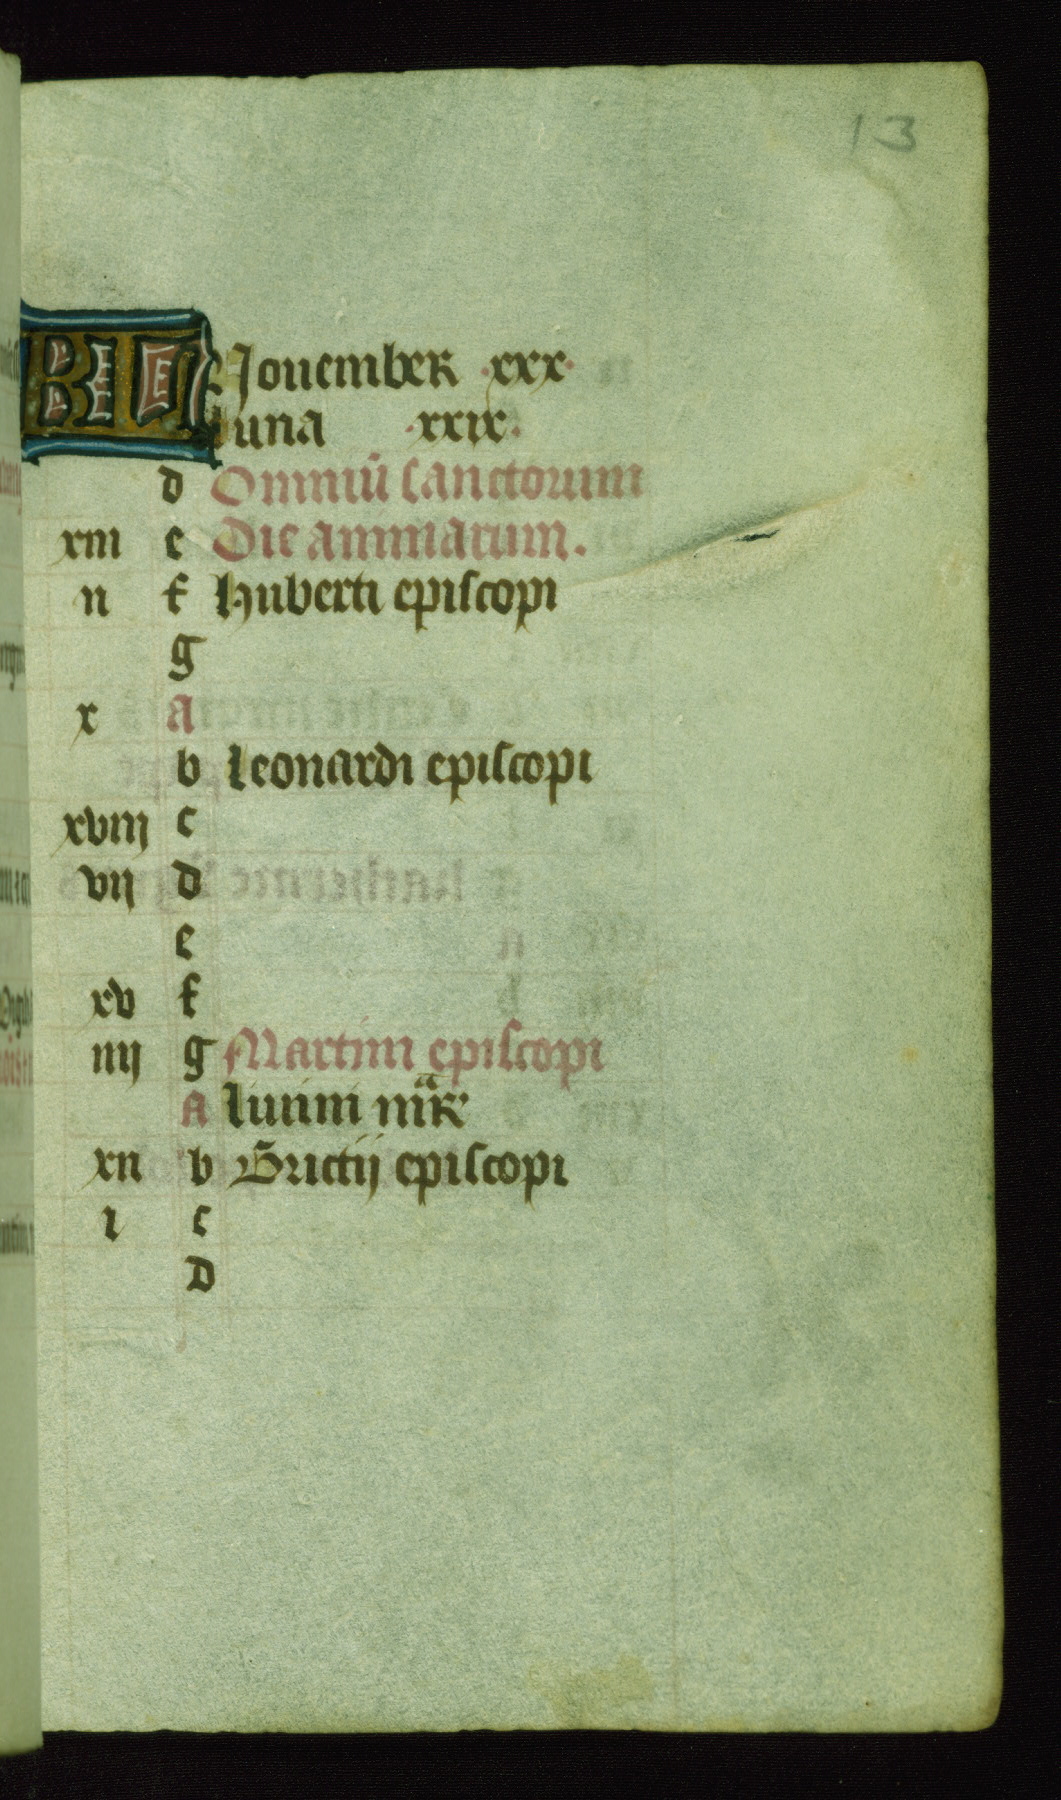 13
KL Nouember ·xxx·
luna ·xxix·
d Omniū sanctorum
xiii e Die animarum.
ii f Huberti episcopi
g
x a
b leonardi episcopi
xviij c
vij d
e
xv f
iiij g Martini episcopi
A liuini
xii b Brictij episcopi
i c
D